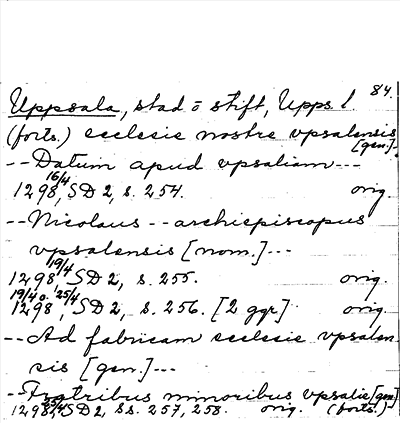 84.
Uppsala, stad o stift, Upps. l.
(forts.) ecclesie nostre vpsalensis
[gen.]--
-- Datum apud vpsaliam ---
1298 16/4, SD 2, s. 254. orig.
-- Nicolaus -- archiepiscopus
vpsalensis [nom.] ---
1298 19/4, SD 2, s. 255. orig.
1298 19/4 o. 25/4, SD 2, s. 256. [2 ggr] orig.
-- Ad fabricam ecclesie vpsalen-
sis [gen.] ---
-- Fratribus minoribus vpsalie [gen]
1298 25/4, SD 2, ss. 257, 258. orig. (forts.)